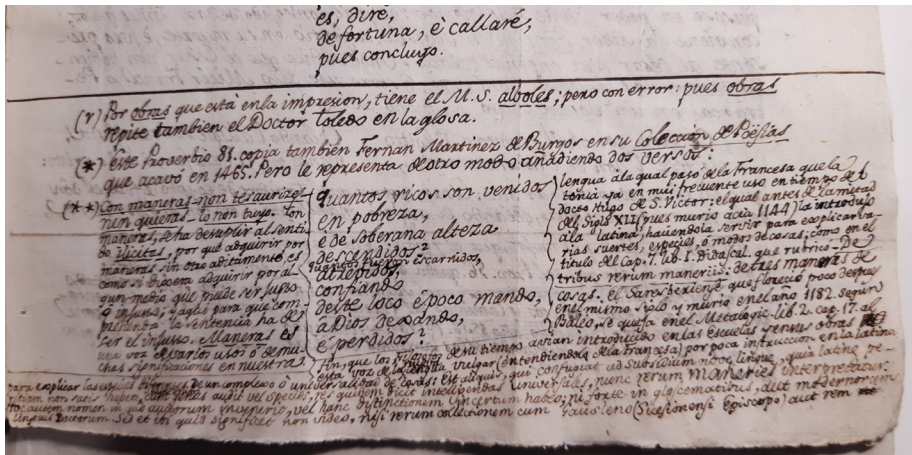 és, diré,
de fortuna, è callaré,
pues concluyo.
(r) Por obras que está en la impresion, tiene el M.S. alboles; pero con error: pues obras
repite tambien el Doctor Toledo en la glosa.
(*) Este Proverbio 81. copia tambien Fernan Martinez de Burgos en su Coleccion de Poësias
que acavó en 1465. Pero le representa de otro modo añadiendo dos versos:
(**) Con maneras non tesaurizes
nin quieras lo non tuyo. Con
maneras, se ha de suplir al senti
do ilicitas, por què adquirir por
maneras sin otro aditamento, es
como si dixera adquirir por al-
gun medio que puede ser justo
ó injusto; y aqui para que com-
prehenda la sentencia ha de
ser el injusto. Maneras es
una voz de varios usos ó de mu-
chas significaciones en nuestra
quantos ricos son venidos
en pobreza,
e de soberana alteza
descendidos?
quantos fueron escarnidos,
confiando
deste loco é poco mando,
a Dios dexando,
é perdidos?
lengua à la qual pasó de la Francesa que la
tonia ya en mui frecuente uso en tiempo de el
docto Hugo de S. Victor: el qual antes de la mitad
del Siglo XII (pues murio acia 1144) la introdujo
à la latina, haciendola servir para explicar va-
rias suertes, especies, ó modos de cosas; como en el
titulo del Cap. 7. lib. 1. Didascal. que rubricò. De
tribus rerum maneriis: de tres maneras de
cosas. el Saresberiense que floreció poco despues
en el mismo siglo y murio en el año 1182. segun
Baleo, se quexa en el Metalogic. lib. 2. cap. 17. al
fin, que los Filosofos de su tiempo avian introducido en las escuelas y en sus obras
esta voz de la vulgar (entendiendola de la Francesa) por poca instruccion en la latina
para explicar las especies de un complexo ó universalidad de cosas: Est aliquis, qui confugiat ad subsidium novae linguae, quia latinae pe-
ritiam non satis habet, res quidem dicit intelligendas universales, nunc rerum maneries interpretatur.
Hoc autem nomen in quo auctorum invenerit, vel hanc distinctionem incertum habeo; ni forte in glosematibus, aut modernorum
linguis Doctorum. Sed et in quid significet non video, nisi rerum collectionem cum Gausleno (Suesionensi Episcopo) aut rem